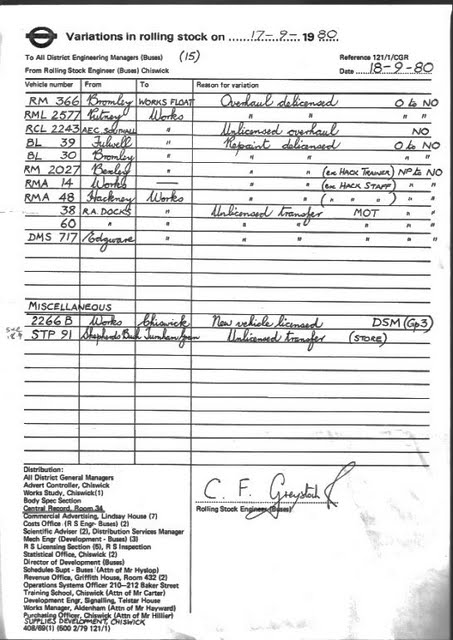 Variations in rolling stock on 17-9-1980
To All District Engineering Managers (Buses) (15) Reference 121/1/CGR
From Rolling Stock Engineer (Buses) Chiswick Date 18-9-80
Vehicle number From To Reason for variation
RM 366 Bromley WORKS FLOAT Overhaul delicensed O to NO
RML 2577 Putney Works " " " "
RCL 2243 AEC. SOUTHALL " Unlicensed overhaul NO
BL 39 Fulwell " Repaint delicensed O to NO
BL 30 Bromley " " " " "
RM 2027 Bexley " " " (ex HACK TRAINER) NP to NO
RMA 14 Works — " " (ex HACK STAFF) " "
RMA 48 Hackney Works " " ( " " ) " "
38 R.A. DOCKS " Unlicensed transfer MOT " "
60 " " " " " " "
DMS 717 Edgware " " " " " "
MISCELLANEOUS
2266 B Works Chiswick New vehicle licensed DSM (Gp3)
STP 91 Shepherds Bush Turnham Green Unlicensed transfer (STORE)
Distribution:
All District General Managers
Advert Controller, Chiswick
Works Study, Chiswick(1)
Body Spec Section
Central Record, Room 34
Commercial Advertising, Lindsay House (7)
Costs Office (R S Engr- Buses) (2)
Scientific Adviser (2), Distribution Services Manager
Mech Engr (Development - Buses) (3)
R S Licensing Section (5), R S Inspection
Statistical Office, Chiswick (2)
Director of Development (Buses)
Schedules Supt - Buses (Attn of Mr Hyslop)
Revenue Office, Griffith House, Room 432 (2)
Operations Systems Officer 210-212 Baker Street
Training School, Chiswick (Attn of Mr Carter)
Development Engr, Signalling, Telstar House
Works Manager, Aldenham (Attn of Mr Hayward)
Purchasing Officer, Chiswick (Attn of Mr Hillier)
SUPPLIES DEVELOPMENT, CHISWICK
408/69(1) (500 2/79 121/1)
C. F.
Rolling Stock Engineer (Buses)